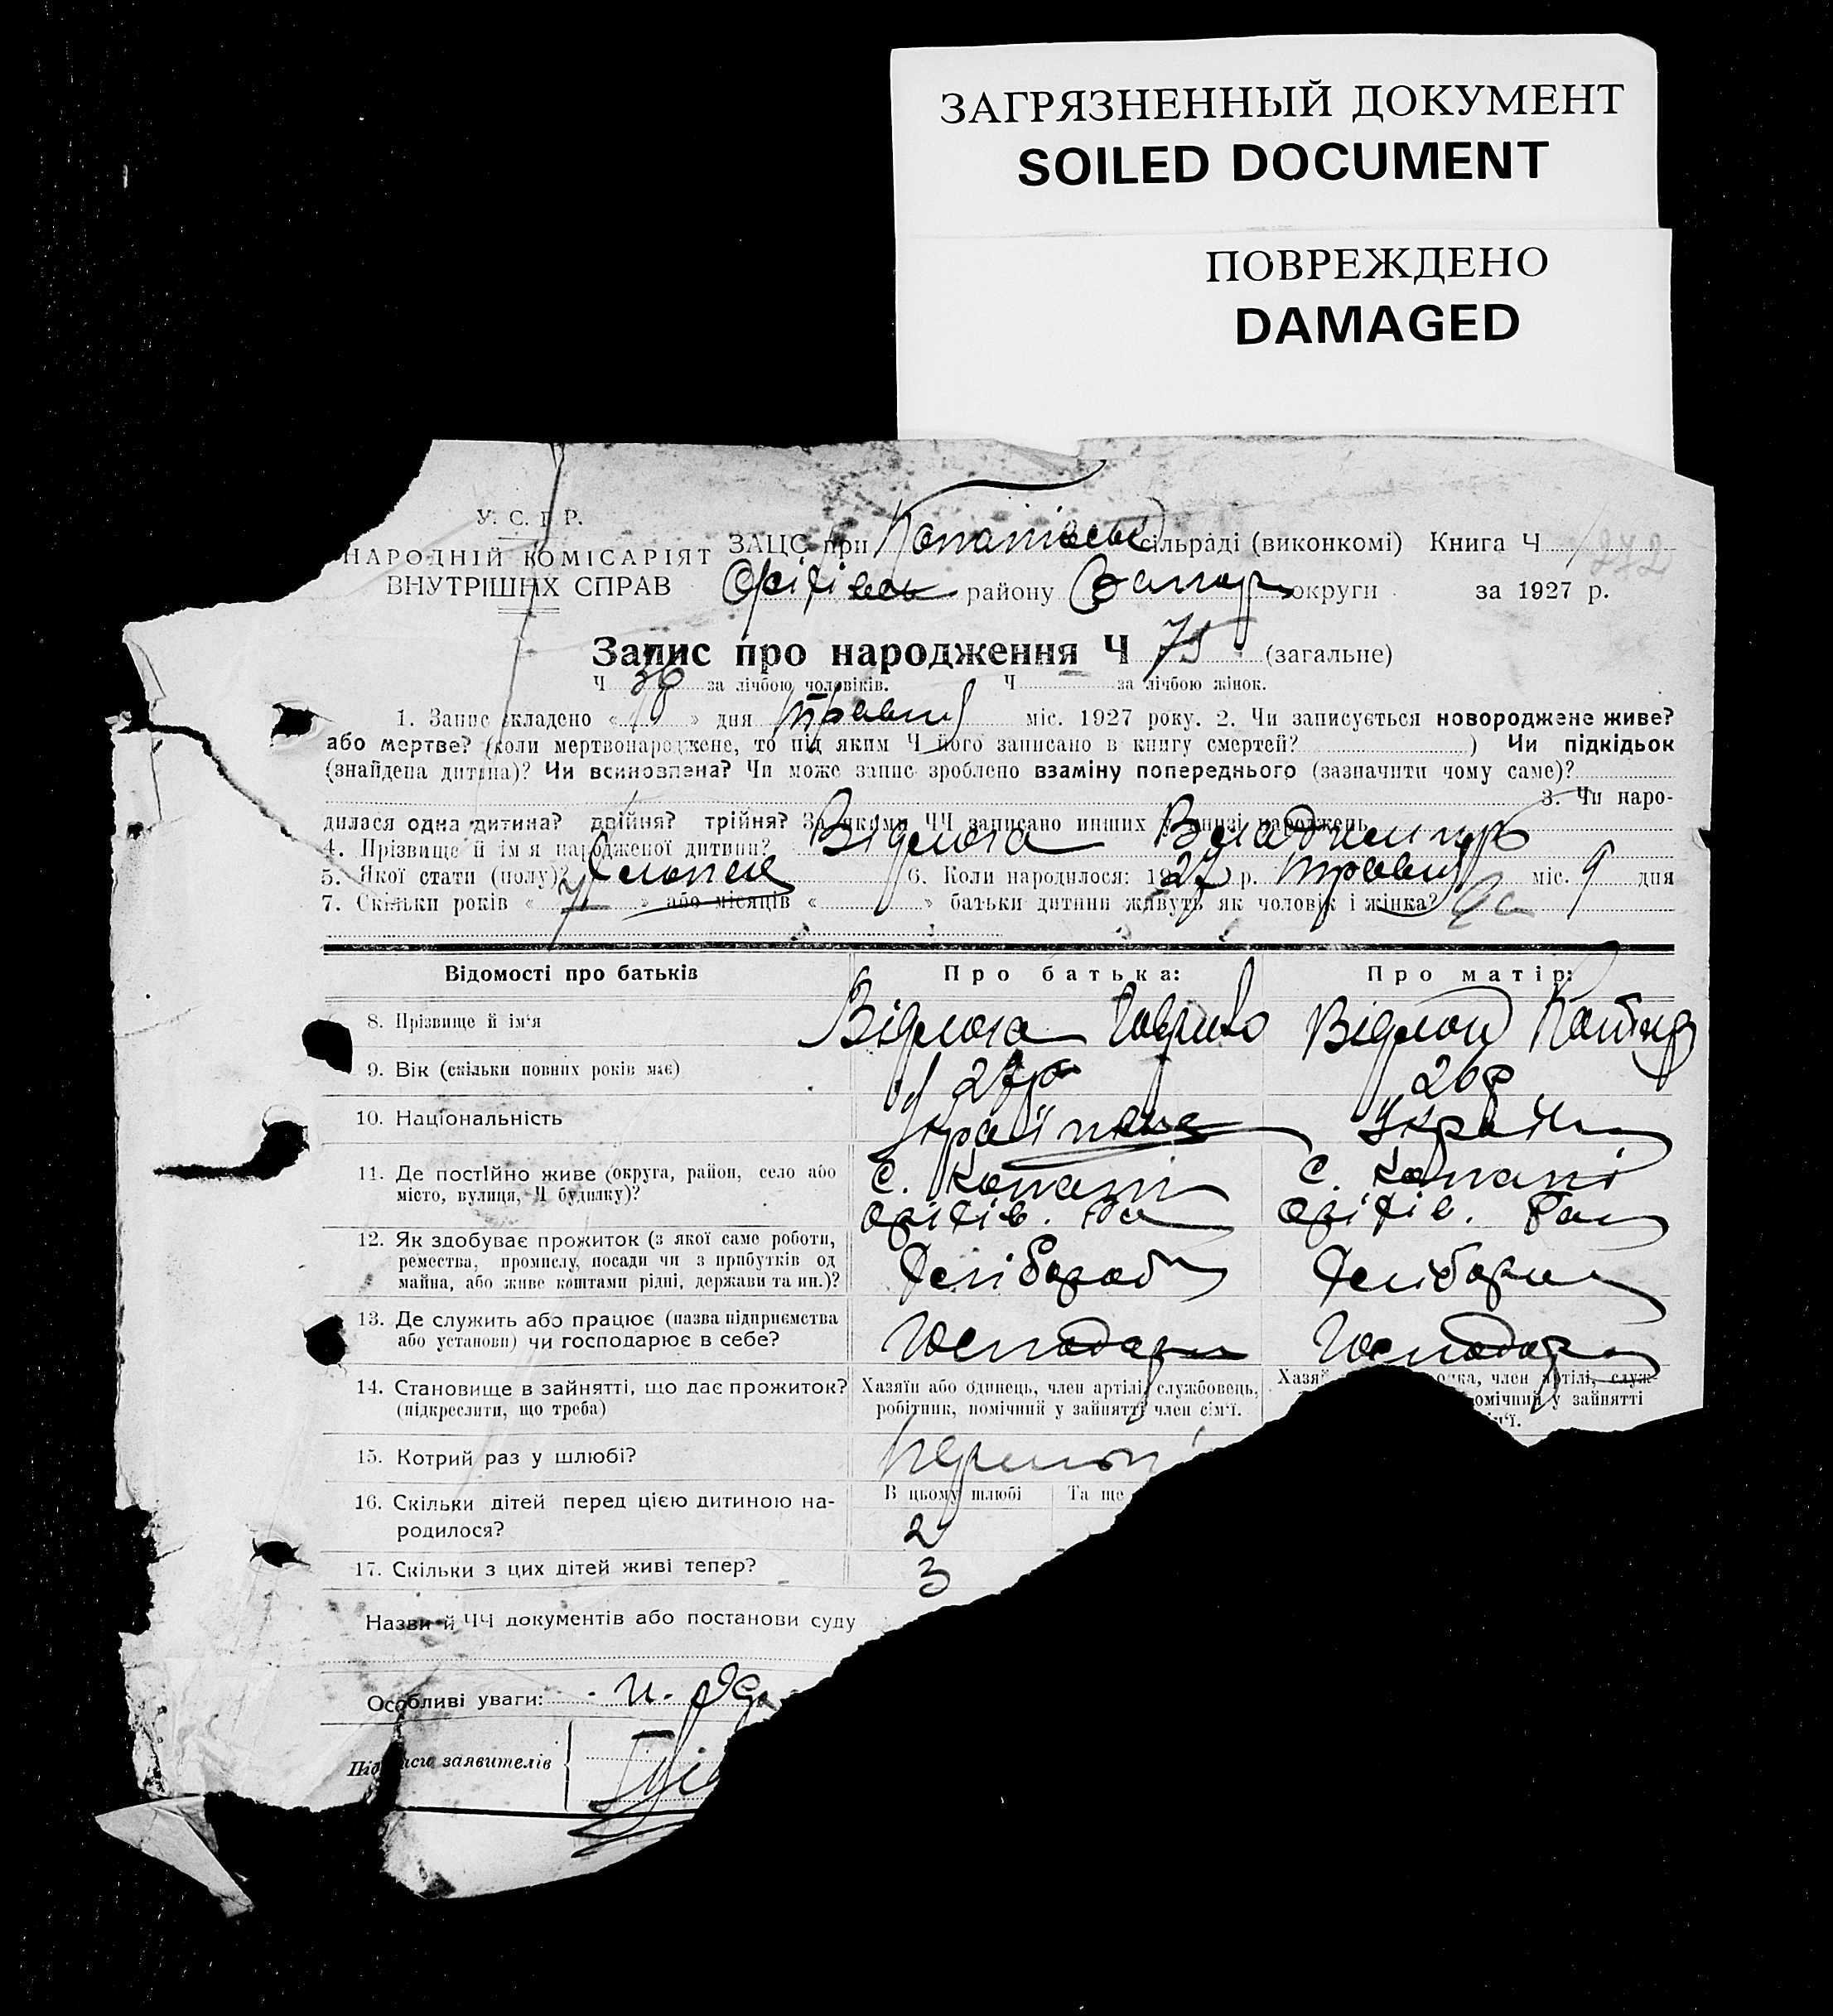 ЗАГРЯЗНЕННЫЙ ДОКУМЕНТ
SOILED DOCUMENT
ПОВРЕЖДЕНО
DAMAGED
У. С. Р. Р.
НАРОДНІЙ КОМІСАРІЯТ
ВНУТРІШНІХ СПРАВ
ЗАЦС при Копанівськ сільраді (виконкомі) Книга Ч 272
Оріхівськ району Запор округи за 1927 р.
Запис про народження Ч 75 (загальне)
Ч за лічбою чоловіків. Ч за лічбою жінок.
1. Запис складено « » дня травня міс. 1927 року. 2. Чи записується новороджене живе?
або мертве? (коли мертвонароджене, то під яким Ч його записано в книгу смертей? ) Чи підкідьок
(знайдена дитина)? Чи всиновлена? Чи може запис зроблено взаміну попереднього (зазначити чому саме)?
3. Чи наро-
дилася одна дитина? двійня? трійня? За якими ЧЧ записано инших у книзі народжень
4. Прізвище й ім'я народженої дитини? Відмога Владимир
5. Якої стати (полу)? Хлопець 6. Коли народилося: 1927 р. травня міс. 9 дня
7. Скільки років « 7 » або місяців « » батьки дитини живуть як чоловік і жінка?
Відомості про батьків Про батька: Про матір:
8. Прізвище й ім'я Відмога Гаврило Відмога
9. Вік (скільки повних років має) 27р 26р
10. Національність Українец Україн
11. Де постійно живе (округа, район, село або
місто, вулиця, Ч будинку)?
с. Копані с. Копані
оріхів. Ра оріхів. Рай
12. Як здобуває прожиток (з якої саме роботи,
ремества, промислу, посади чи з прибутків од
майна, або живе коштами рідні, держави та ин.)?
Хліборобс Хлібороб
13. Де служить або працює (назва підприємства
або установи) чи господарює в себе?
Господарь Господар
14. Становище в зайнятті, що дає прожиток?
(підкреслити, що треба)
Хазяїн або одинець, член артілі, службовець,
робітник, помічний у зайнятті член сім'ї.
Хазяй ка, член артілі, служ-
омічний у зайнятті
ім'ї.
15. Котрий раз у шлюбі? перший
16. Скільки дітей перед цією дитиною на-
родилося?
В цьому шлюбі Та ще
2
17. Скільки з цих дітей живі тепер? 3
Назви й ЧЧ документів або постанови суду
Особливі уваги:
Підписи заявителів